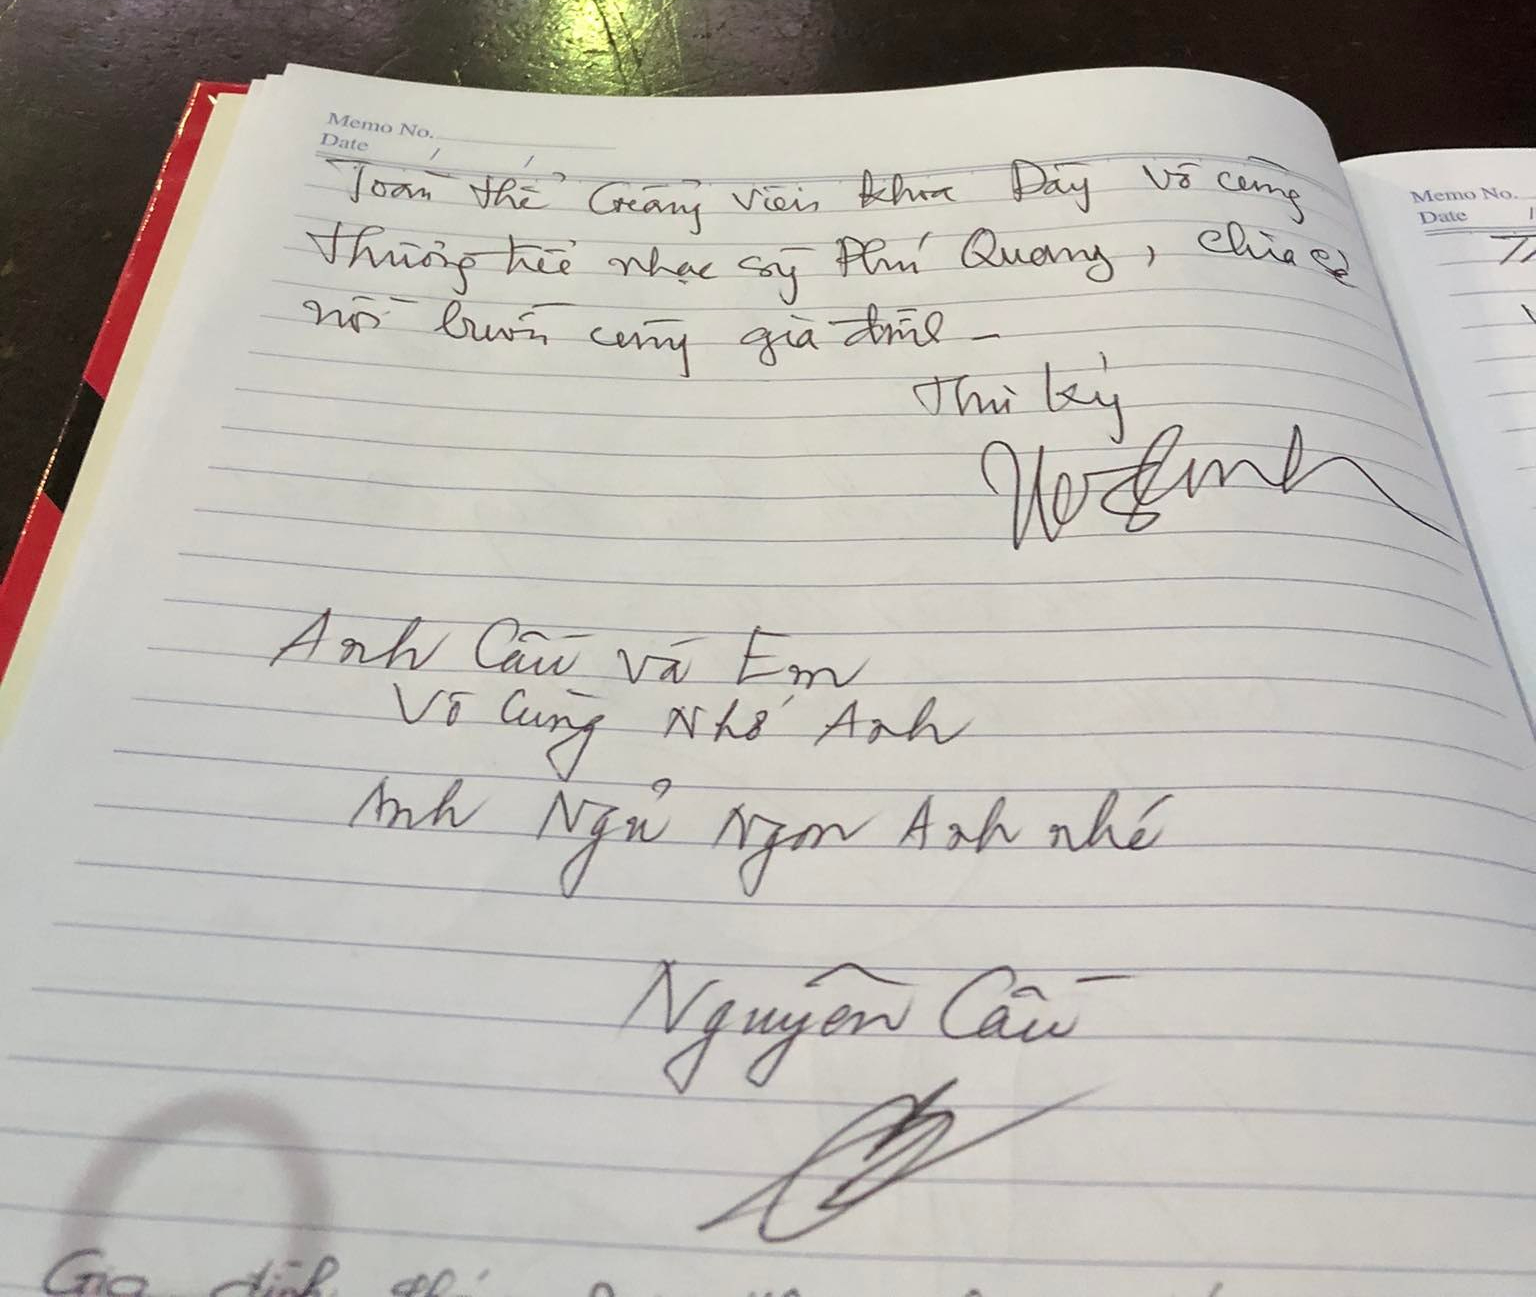 Memo No.
Date / /
Toàn thể Giảng viên khoa Dây vô cùng
thương tiếc nhạc sỹ Phú Quang, chia sẻ
nỗi buồn cùng gia đình -
Thư ký
Anh Cầu và Em
Vô Cùng Nhớ Anh
Anh Ngủ Ngon Anh nhé
Nguyên Cầu
Gia đình
Memo No.
Date /